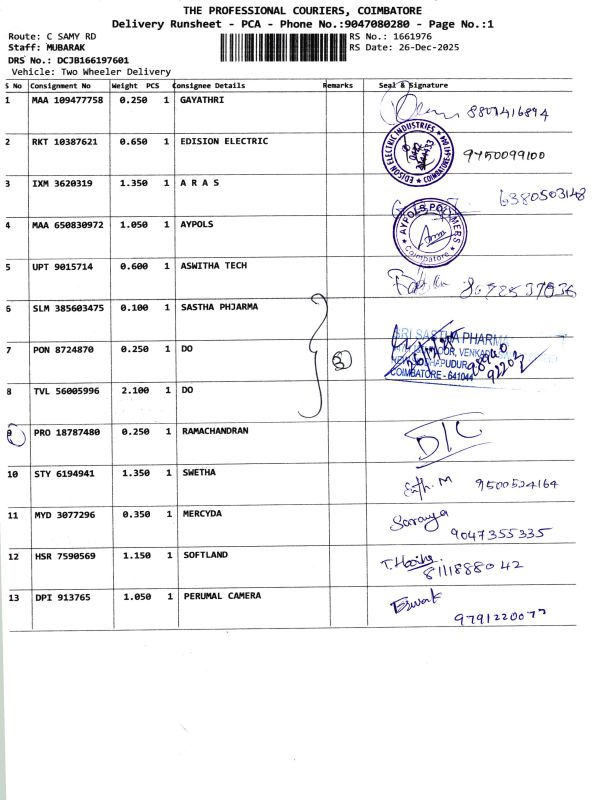 THE PROFESSIONAL COURIERS, COIMBATORE
Delivery Runsheet - PCA - Phone No.:9047080280 - Page No.:1
Route: C SAMY RD RS No.: 1661976
Staff: MUBARAK RS Date: 26-Dec-2025
DRS No.: DCJB166197601
Vehicle: Two Wheeler Delivery
S No Consignment No Weight PCS Consignee Details Remarks Seal & Signature
1 MAA 109477758 0.250 1 GAYATHRI
2 RKT 10387621 0.650 1 EDISION ELECTRIC 9750099100
EDISON ELECTRIC INDUSTRIES
3 IXM 3620319 1.350 1 A R A S 6380503148
4 MAA 650830972 1.050 1 AYPOLS
AYPOLS POLYMERS
Coimbatore
5 UPT 9015714 0.600 1 ASWITHA TECH
6 SLM 385603475 0.100 1 SASTHA PHJARMA
7 PON 8724870 0.250 1 DO 3
SRI SASTHA PHARMA
COIMBATORE - 641044
8 TVL 56005996 2.100 1 DO
9 PRO 18787480 0.250 1 RAMACHANDRAN D/C
10 STY 6194941 1.350 1 SWETHA 9500524164
11 MYD 3077296 0.350 1 MERCYDA Saranya
9047355335
12 HSR 7590569 1.150 1 SOFTLAND
8111888042
13 DPI 913765 1.050 1 PERUMAL CAMERA
9791220077